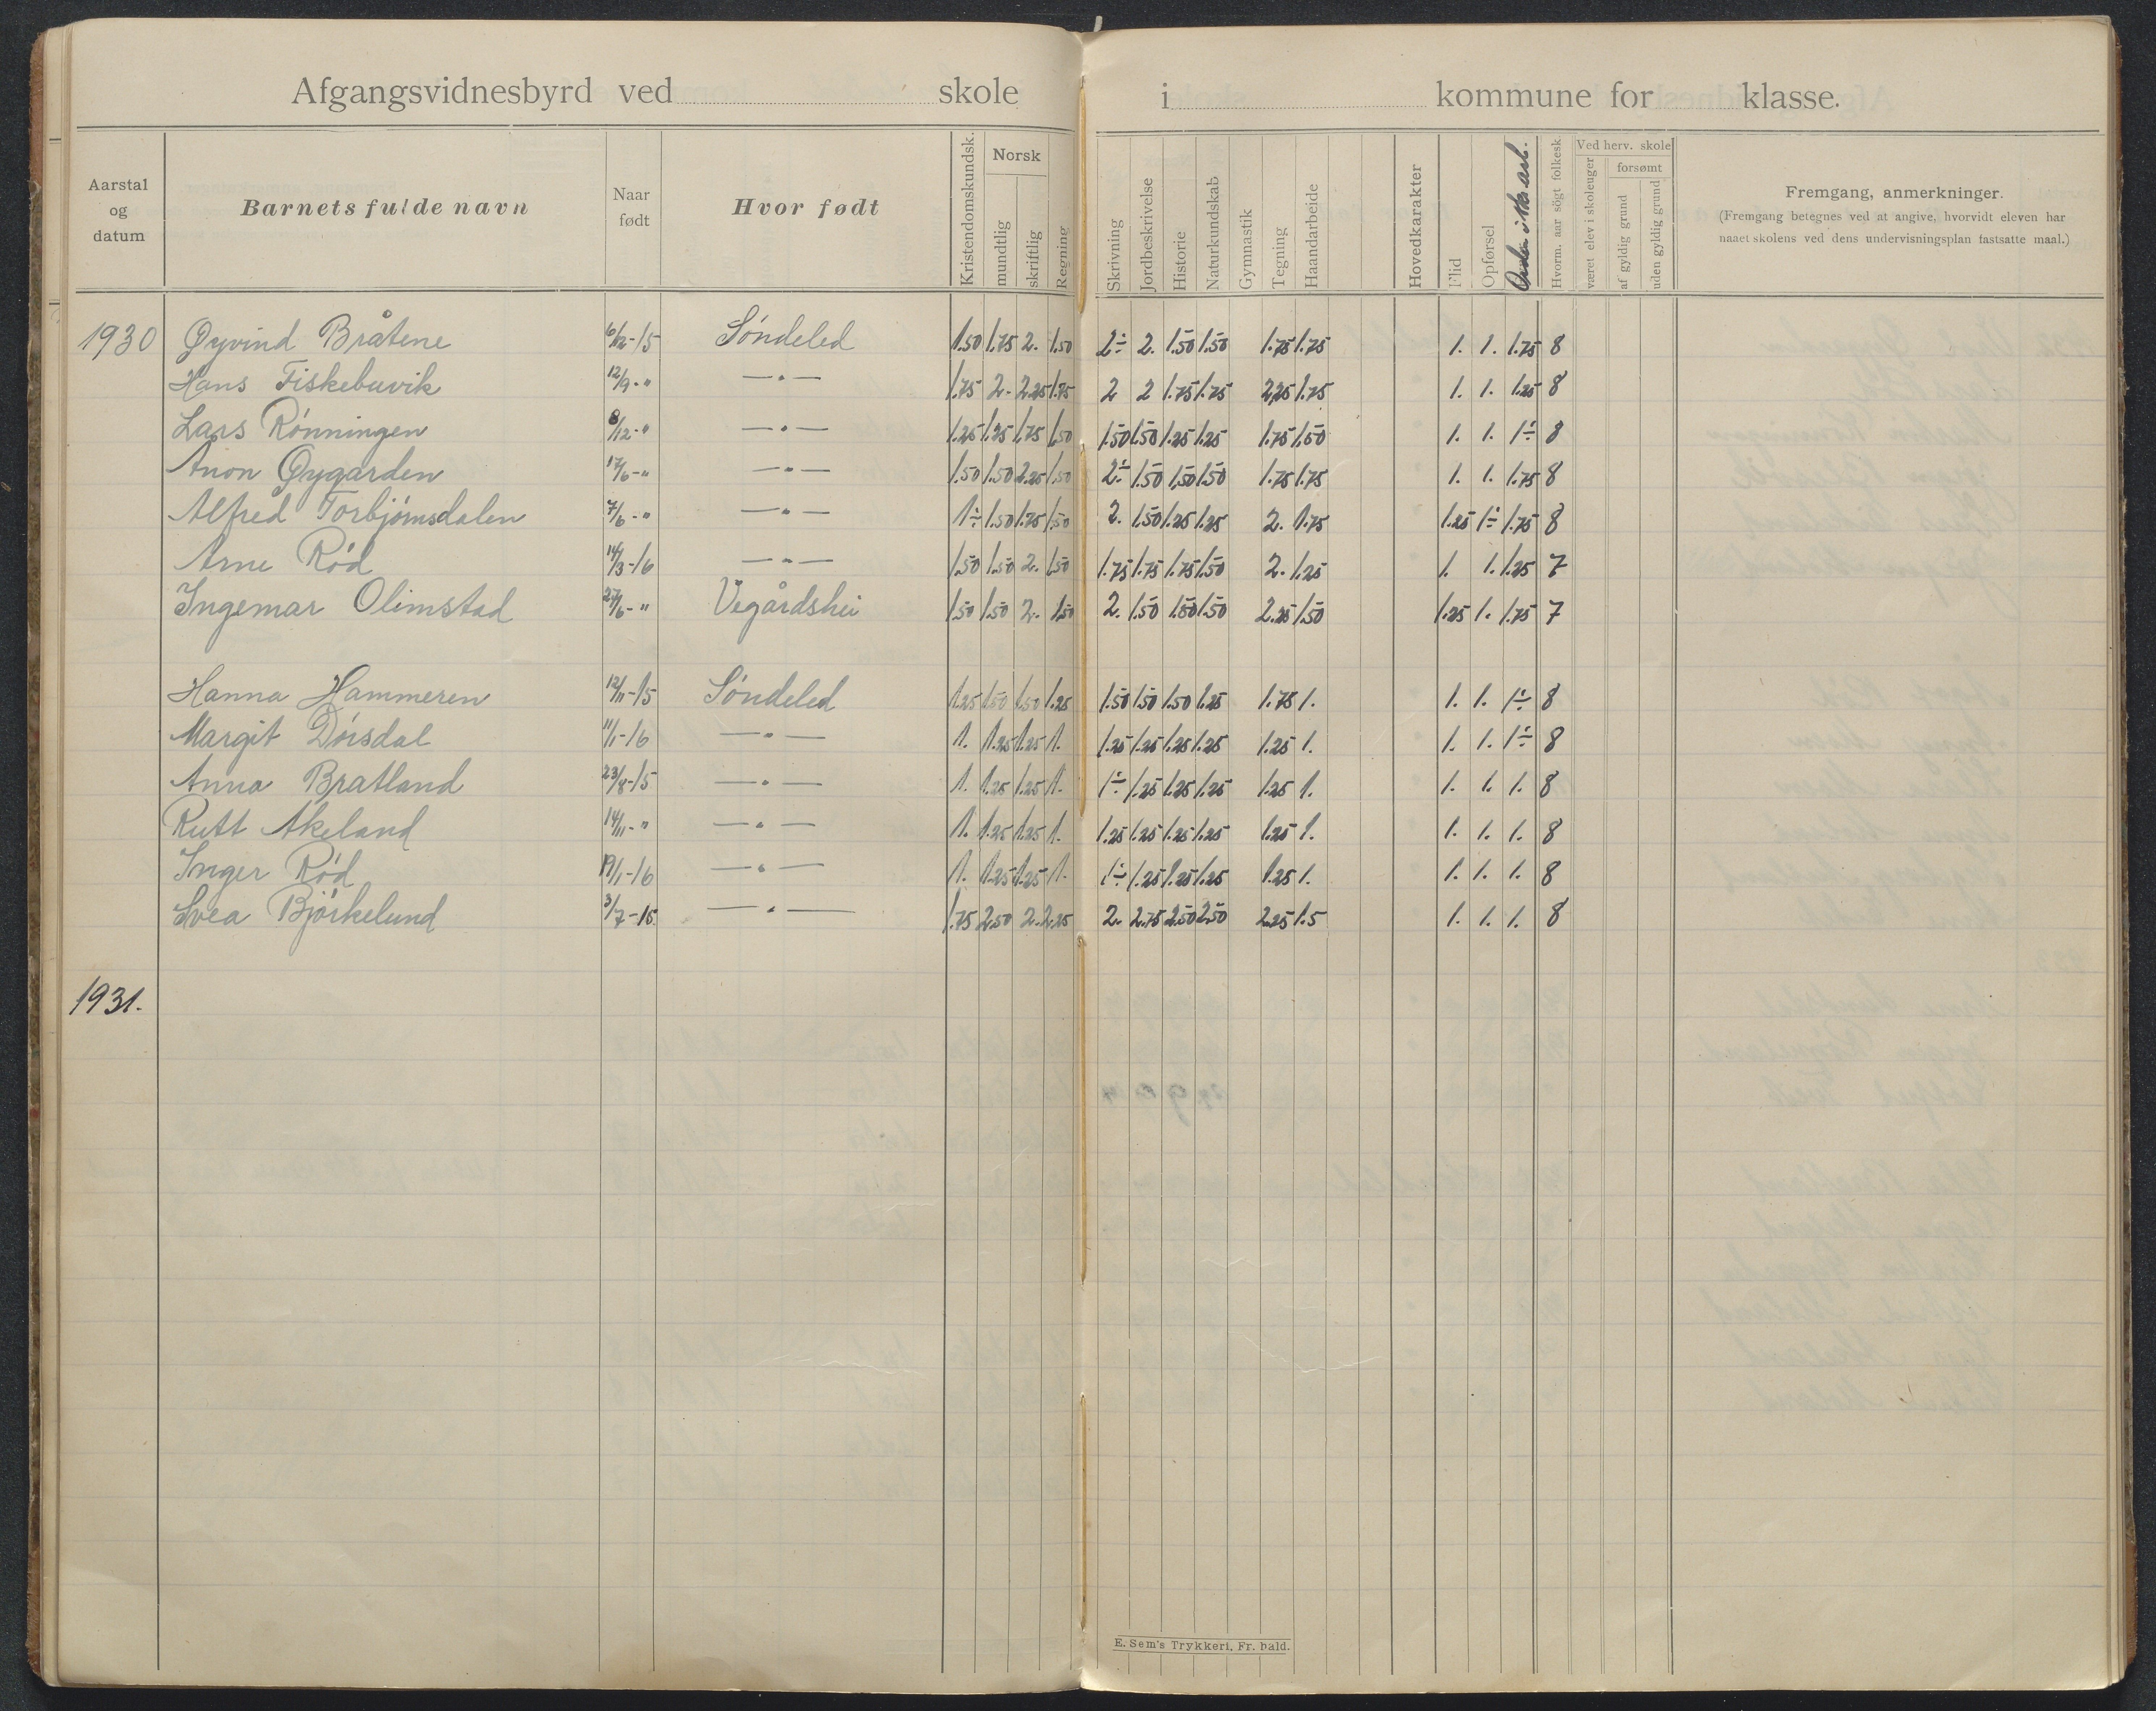 Afgangsvidnesbyrd ved skole i kommune for klasse.
Aarstal og datum
Barnets fulde navn
Naar født
Hvor født
Kristendomskundsk.
Norsk
mundtlig
skriftlig
Regning
Skrivning
Jordbeskrivelse
Historie
Naturkundskab
Gymnastik
Tegning
Haandarbeide
Hovedkarakter
Flid
Opførsel
Hvorm. aar søgt folkesk.
Ved herv. skole
været elev i skoleuger
forsømt
af gyldig grund
uden gyldig grund
Fremgang, anmerkninger.
(Fremgang betegnes ved at angive, hvorvidt eleven har
naaet skolens ved dens undervisningsplan fastsatte maal.)
1930 Øyvind Bråtene 6/12-15 Søndeled 1.50 1.75 2. 1.50 2÷ 2. 1.50 1.50 1.75 1.75 1. 1. 1.75 8
Hans Fiskebuvik 12/9-" —"— 1.75 2- 2.25 1.75 2 2 1.75 1.75 2,25 1.75 1. 1. 1.25 8
Lars Rønningen 8/12-" —"— 1.25 1.25 1.75 1.50 1.50 1.50 1.25 1.25 1.75 1.50 1. 1. 1÷ 8
Anon Øygarden 17/6-" —"— 1.50 1.50 2.25 1.50 2÷ 1.50 1.50 1.50 1.75 1.75 1. 1. 1.75 8
Alfred Torbjørnsdalen 7/6-" —"— 1÷ 1.50 1.75 1.50 2. 1.50 1.25 1.25 2. 1.75 1.25 1÷ 1.75 8
Arne Rød 14/3-16 —"— 1.50 1.50 2. 1.50 1.75 1.75 1.75 1.50 2. 1.25 1. 1. 1.25 7
Ingemar Olimstad 27/6-" Vegårdshei 1.50 1.50 2. 1.50 2. 1.50 1.50 1.50 2.25 1.50 1.25 1. 1.75 7
Hanna Hammeren 12/11-15 Søndeled 1.25 1.50 1.50 1.25 1.50 1.50 1.50 1.25 1.75 1. 1. 1. 1÷ 8
Margit Dørsdal 11/1-16 —"— 1. 1.25 1.25 1. 1.25 1.25 1.25 1.25 1.25 1. 1. 1. 1÷ 8
Anna Bratland 23/8-15 —"— 1. 1.25 1.25 1. 1÷ 1.25 1.25 1.25 1.25 1. 1. 1. 1. 8
Rutt Akeland 14/11-" —"— 1. 1.25 1.25 1. 1.25 1.25 1.25 1.25 1.25 1. 1. 1. 1. 8
Inger Rød 19/1-16 —"— 1. 1.25 1.25 1. 1÷ 1.25 1.25 1.25 1.25 1. 1. 1. 1. 8
Svea Bjørkelund 3/7-15 —"— 1.75 2.50 2. 2.25 2. 2.75 2.50 2.50 2.25 1.5 1. 1. 1. 8
1931.
E. Sem's Trykkeri, Fr. hald.